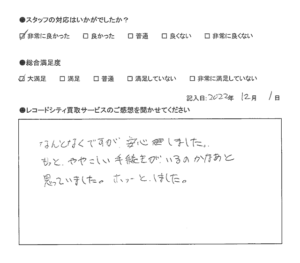 ●スタッフの対応はいかがでしたか?
☑ 非常に良かった □ 良かった □ 普通 □ 良くない □ 非常に良くない
●総合満足度
☑ 大満足 □ 満足 □ 普通 □ 満足していない □ 非常に満足していない
記入日:2022年 12月 1日
●レコードシティ買取サービスのご感想を聞かせてください
なんとなくですが、安心しました。
もっと、ややこしい手続きがいるのかなあと
思っていました。ホッーと、しました。